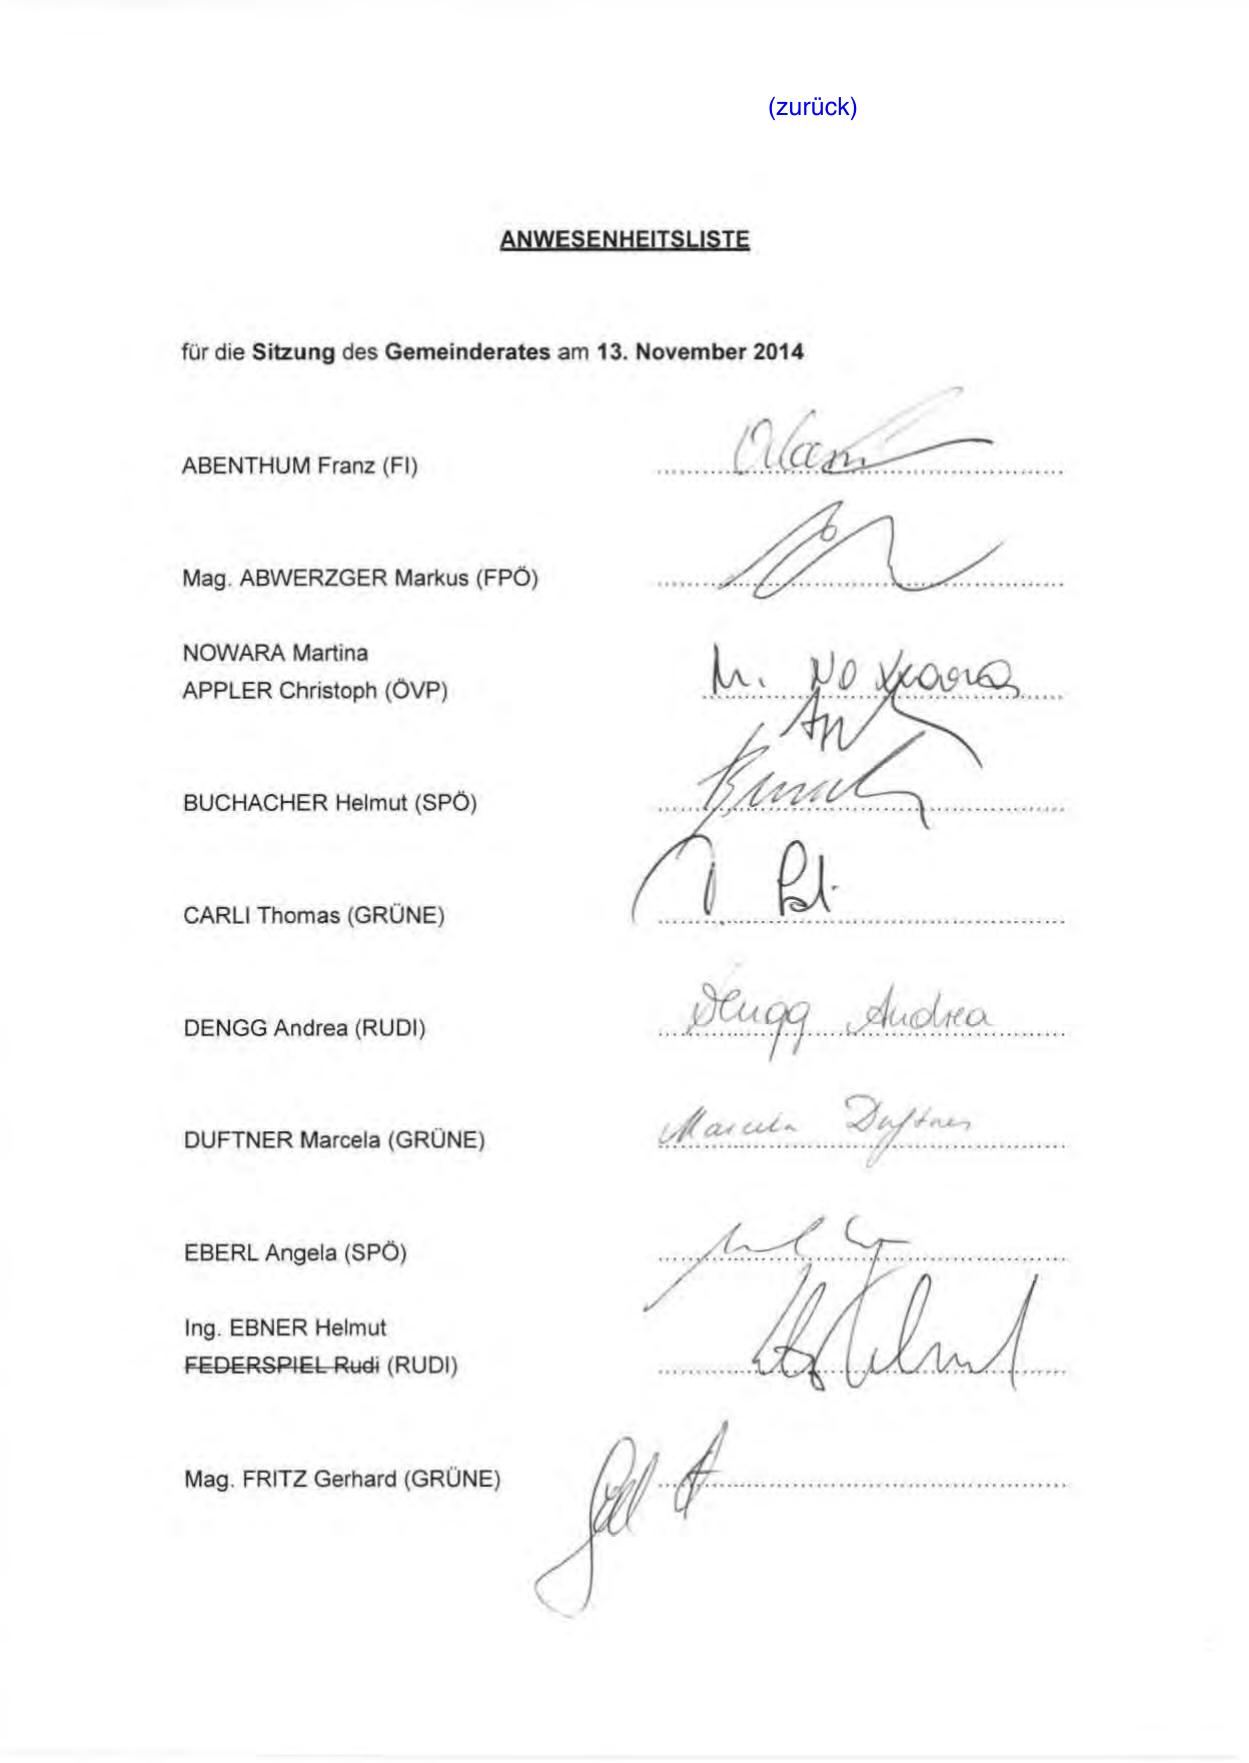 (zurück)
ANWESENHEITSLISTE
für die Sitzung des Gemeinderates am 13. November 2014
ABENTHUM Franz (FI)
Mag. ABWERZGER Markus (FPÖ)
NOWARA Martina
M. Nowara
APPLER Christoph (ÖVP)
BUCHACHER Helmut (SPÖ)
CARLI Thomas (GRÜNE)
DENGG Andrea (RUDI) Dengg Andrea
DUFTNER Marcela (GRÜNE) Marcela Duftner
EBERL Angela (SPÖ)
Ing. EBNER Helmut
FEDERSPIEL Rudi (RUDI)
Mag. FRITZ Gerhard (GRÜNE)